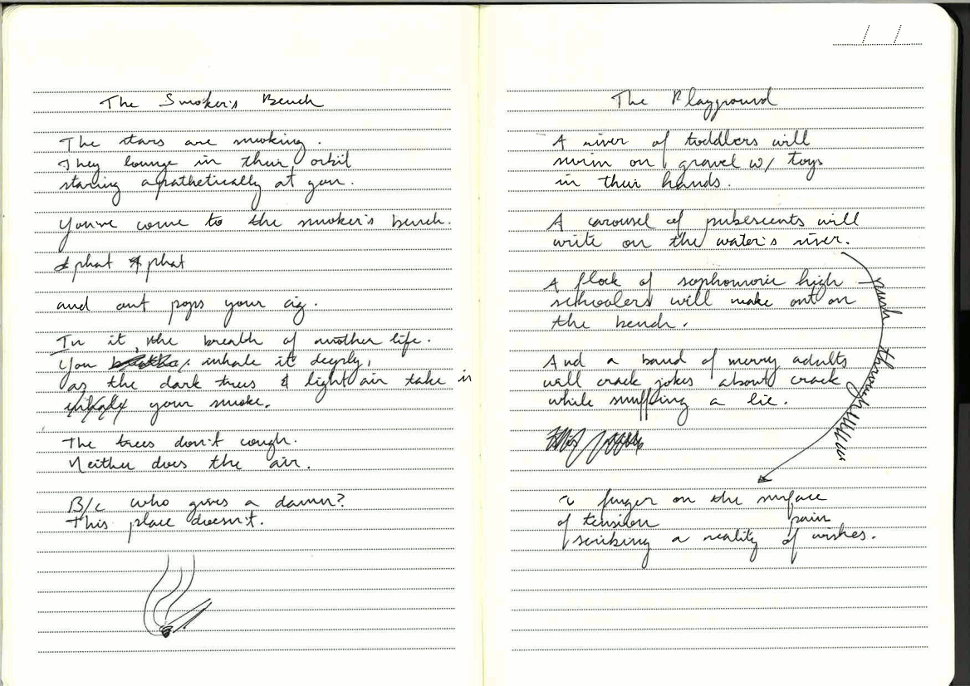 The Smoker's Bench
The stars are smoking.
They lounge in their orbit
staring apathetically at you.
You've come to the smoker's bench.
phat phat
and out pops your cig.
In it, the breath of another life.
You inhale it deeply,
as the dark trees & light air take in
your smoke.
The trees don't cough.
Neither does the air.
B/c who gives a damn?
This place doesn't.
The Playground
A river of toddlers will
swim on gravel w/ toys
in their hands.
A carousel of pubescents will
write on the water's river.
A flock of sophomoric high
schoolers will make out on
the bench.
And a band of merry adults
will crack jokes about crack
while snuffing a lie.
finger on the surface
of tension
pain
scribing a reality of wishes.